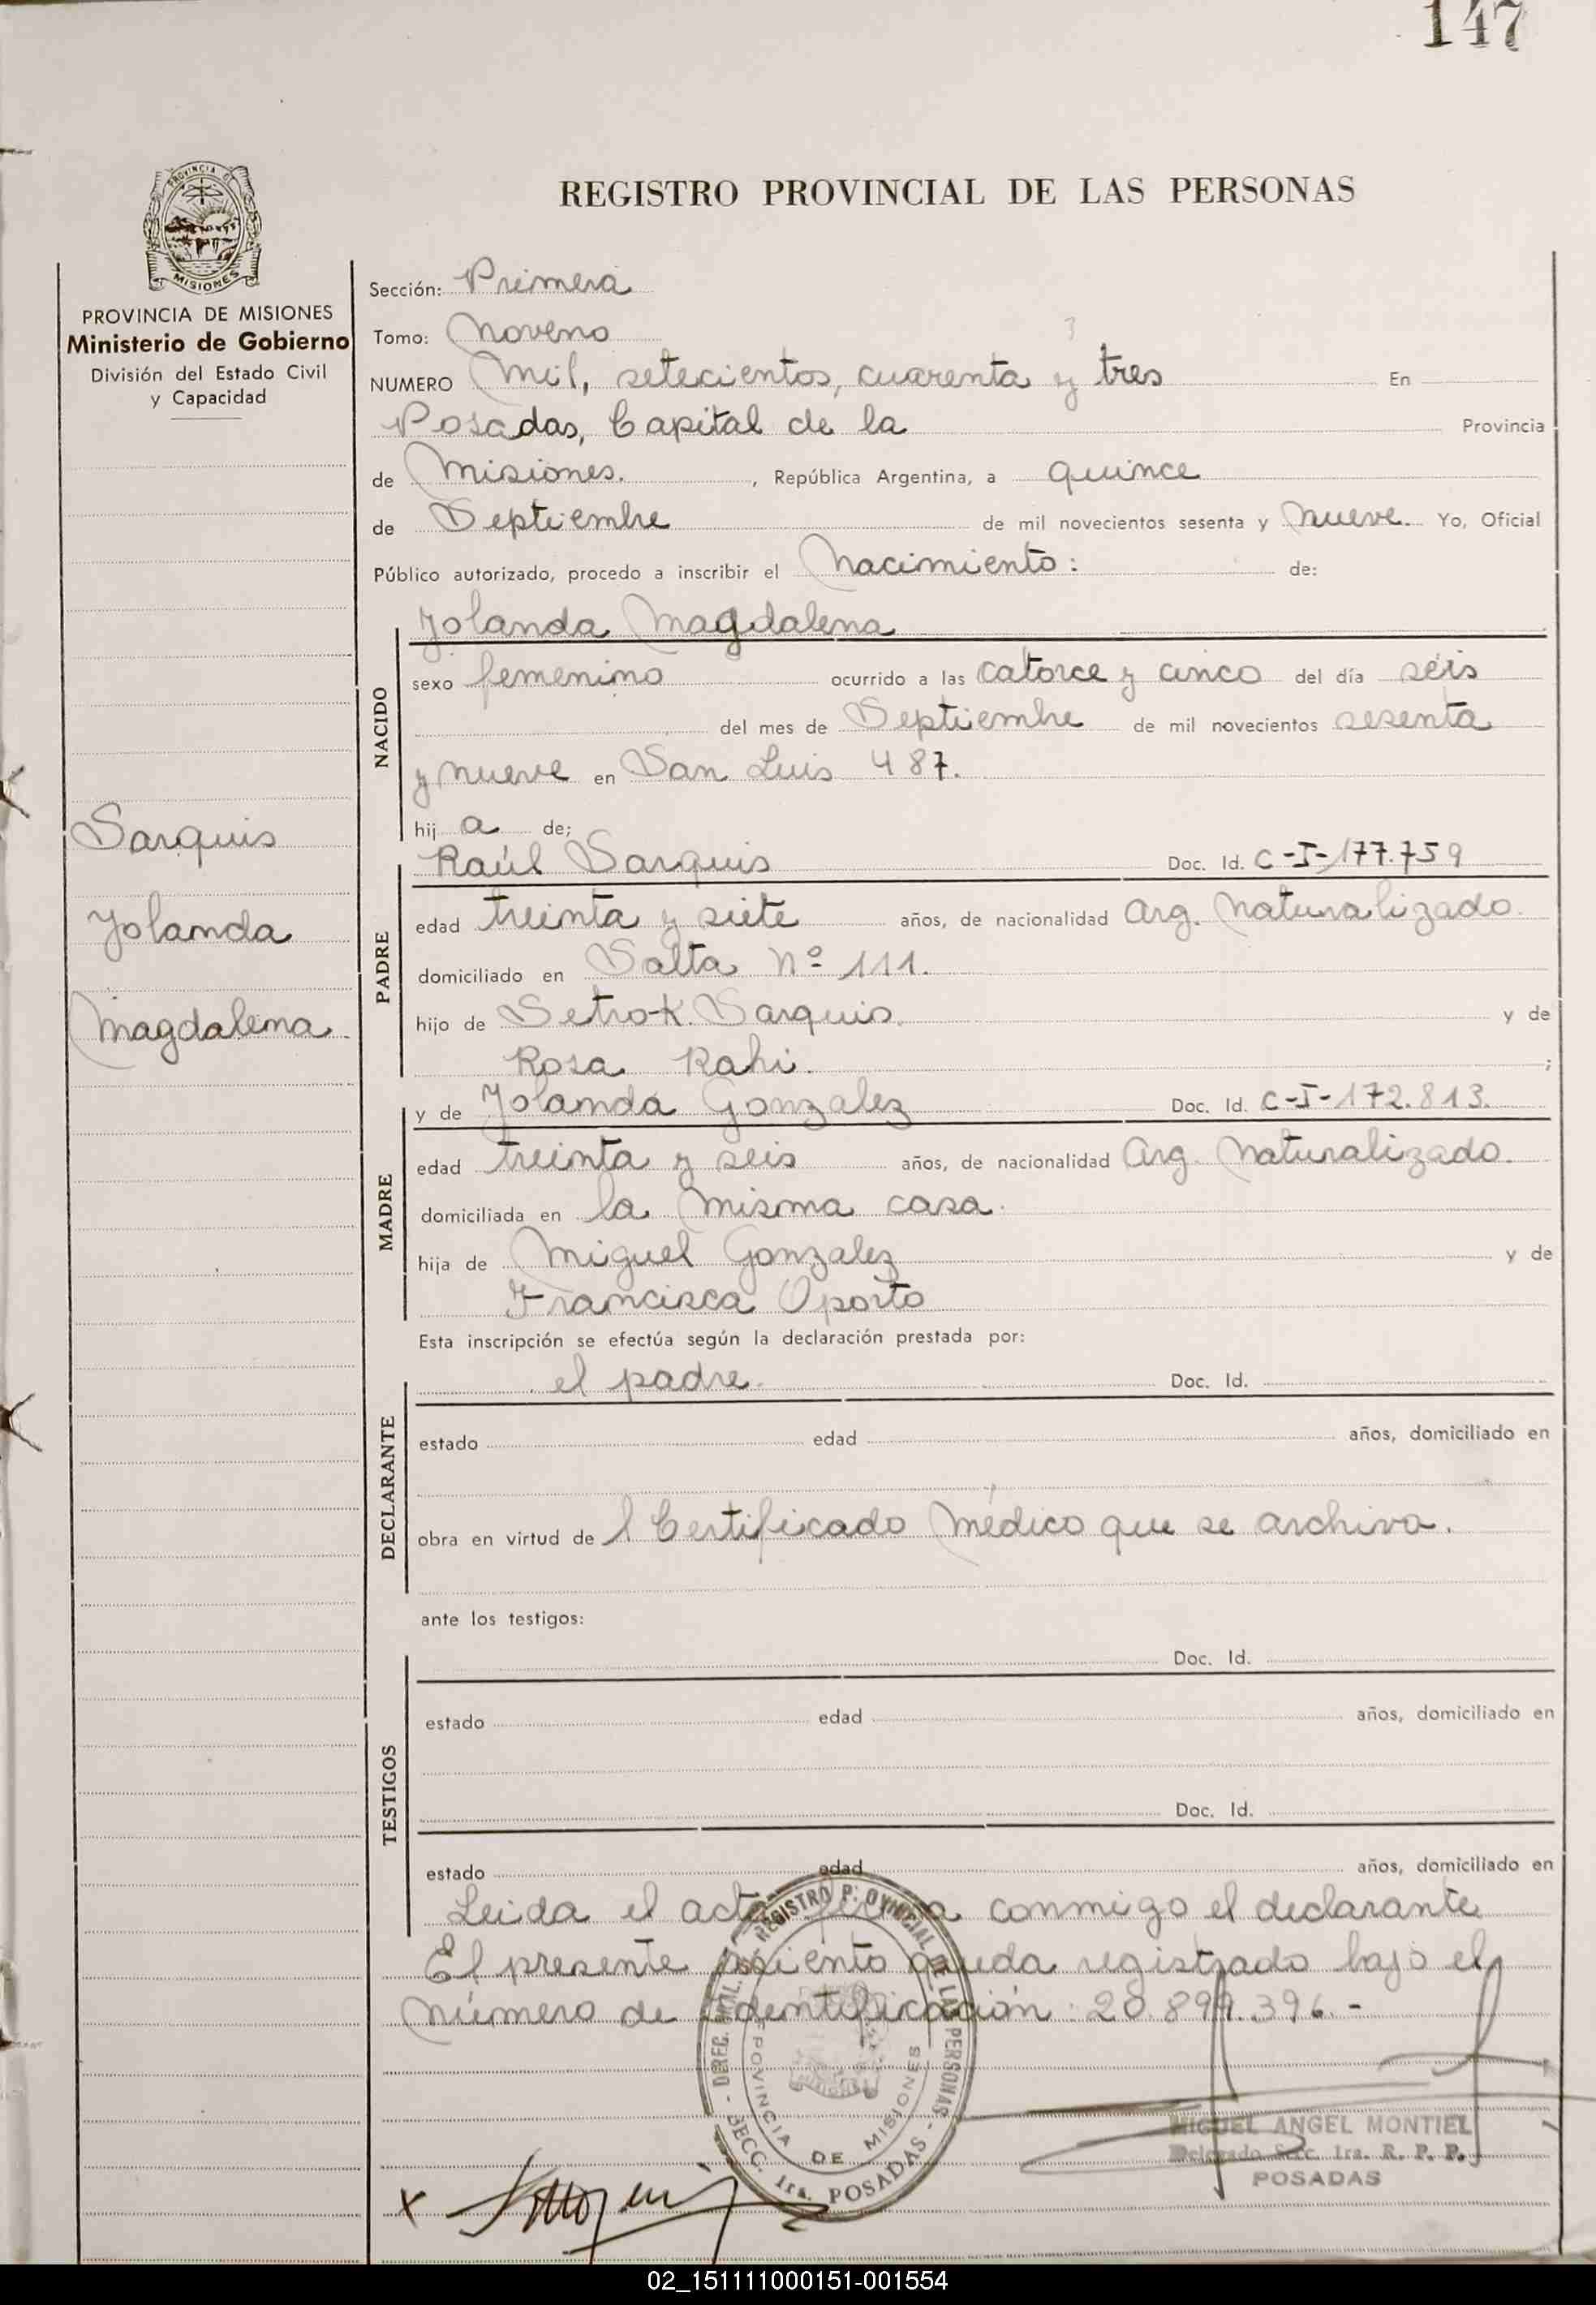 147
PROVINCIA DE
MISIONES
REGISTRO PROVINCIAL DE LAS PERSONAS
PROVINCIA DE MISIONES
Ministerio de Gobierno
División del Estado Civil
y Capacidad
Sarquis
Yolanda
Magdalena
Sección: Primera
Tomo: Noveno
3
NUMERO Mil, setecientos, cuarenta y tres En
Posadas, Capital de la Provincia
de Misiones. , República Argentina, a quince
de Septiembre de mil novecientos sesenta y nueve. Yo, Oficial
Público autorizado, procedo a inscribir el Nacimiento: de:
Yolanda Magdalena
NACIDO
sexo femenino ocurrido a las catorce y cinco del día séis
del mes de Septiembre de mil novecientos sesenta
y nueve en San Luis 487.
hij a de;
Raúl Sarquis Doc. Id. C-I-177.759
PADRE
edad treinta y siete años, de nacionalidad Arg. Naturalizado.
domiciliado en Salta Nº 111.
hijo de Setrak. Sarquis. y de
Rosa Rahi. ;
y de Yolanda Gonzalez Doc. Id. C-I-172.813.
MADRE
edad treinta y seis años, de nacionalidad Arg. Naturalizado.
domiciliada en la misma casa.
hija de Miguel Gonzalez y de
Francisca Oporto
Esta inscripción se efectúa según la declaración prestada por:
el padre. Doc. Id.
DECLARANTE
estado edad años, domiciliado en
obra en virtud de l Certificado Médico que se archiva.
ante los testigos:
Doc. Id.
TESTIGOS
estado edad años, domiciliado en
Doc. Id.
estado edad años, domiciliado en
Leida el acta conmigo el declarante
El presente asiento queda registrado bajo el
número de identificación: 20.899.396.-
REGISTRO PROVINCIAL DE LAS PERSONAS
PROVINCIA DE MISIONES
SECC. 1ra. POSADAS
MIGUEL ANGEL MONTIEL
Delegado Secc. 1ra. R. P. P.
POSADAS
x
02_151111000151-001554